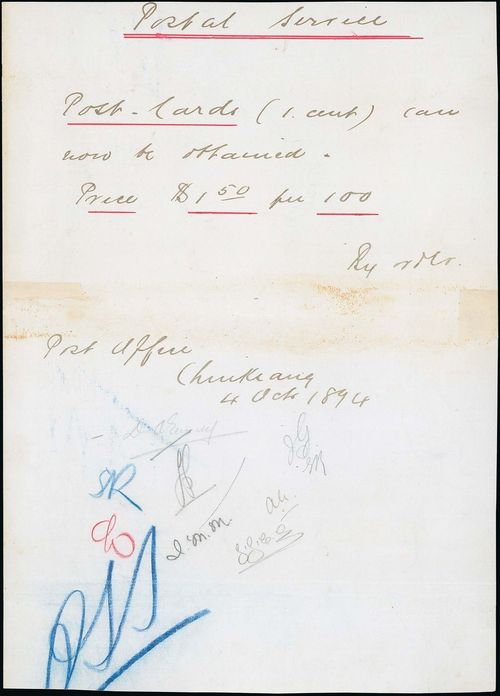 Postal Service
Post-Cards (1. cent) can
now be obtained.
Price $1.50 per 100
By order.
Post Office
Chinkiang
4 Octr 1894
SR
JG
SR
a.u.
L.M.M.